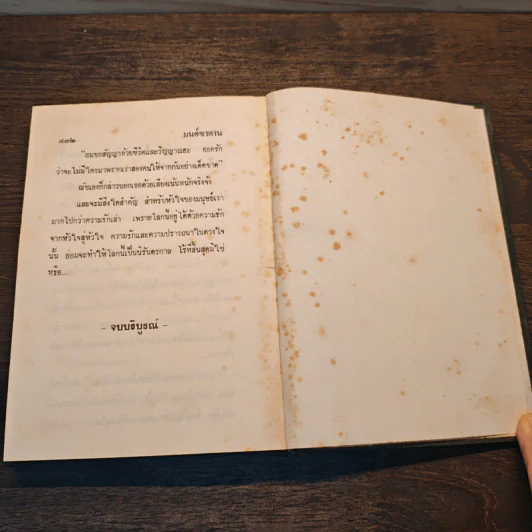 ๕๓๒ มนต์ซาตาน
"ผมขอสัญญาด้วยชีวิตและวิญญาณฮะ ยอดรัก
ว่าจะไม่มีใครมาพรากเราสองคนให้จากกันอย่างเด็ดขาด"
ณัฐเองก็กล่าวบอกเธอด้วยเสียงแน่นหนักจริงจัง
และจะมีสิ่งใดสำคัญ สำหรับหัวใจของมนุษย์เรา
มากไปกว่าความรักเล่า เพราะโลกนี้อยู่ได้ด้วยความรัก
จากหัวใจสู่หัวใจ ความรักและความปรารถนาในดวงใจ
นั้น ย่อมจะทำให้โลกนี้เป็นนิรันดรกาล ไร้ที่สิ้นสุดมิใช่
หรือ...
- จบบริบูรณ์ -